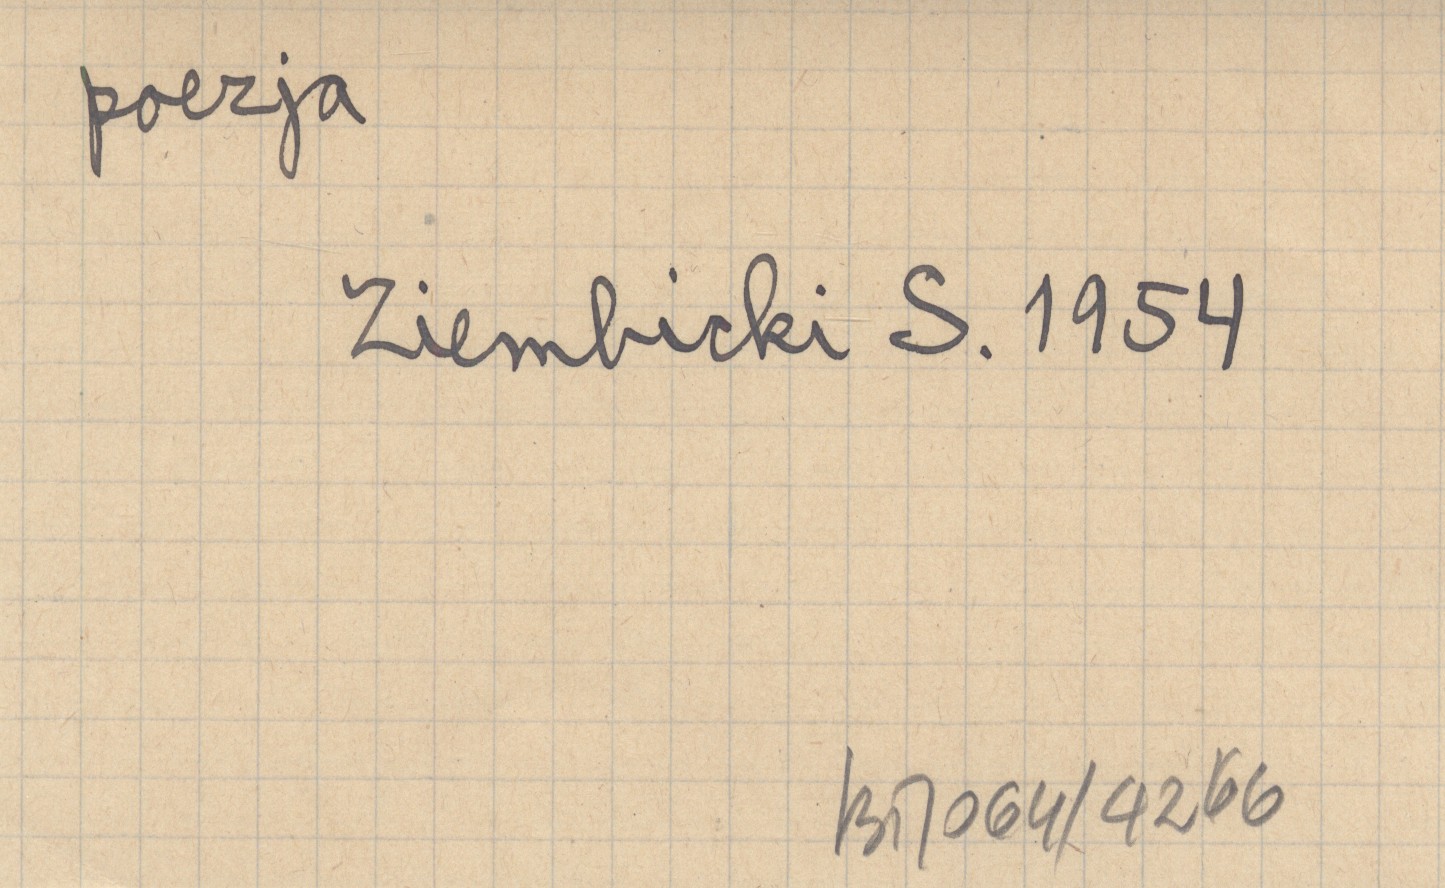 poezja
Ziembicki S. 1954
064/4266